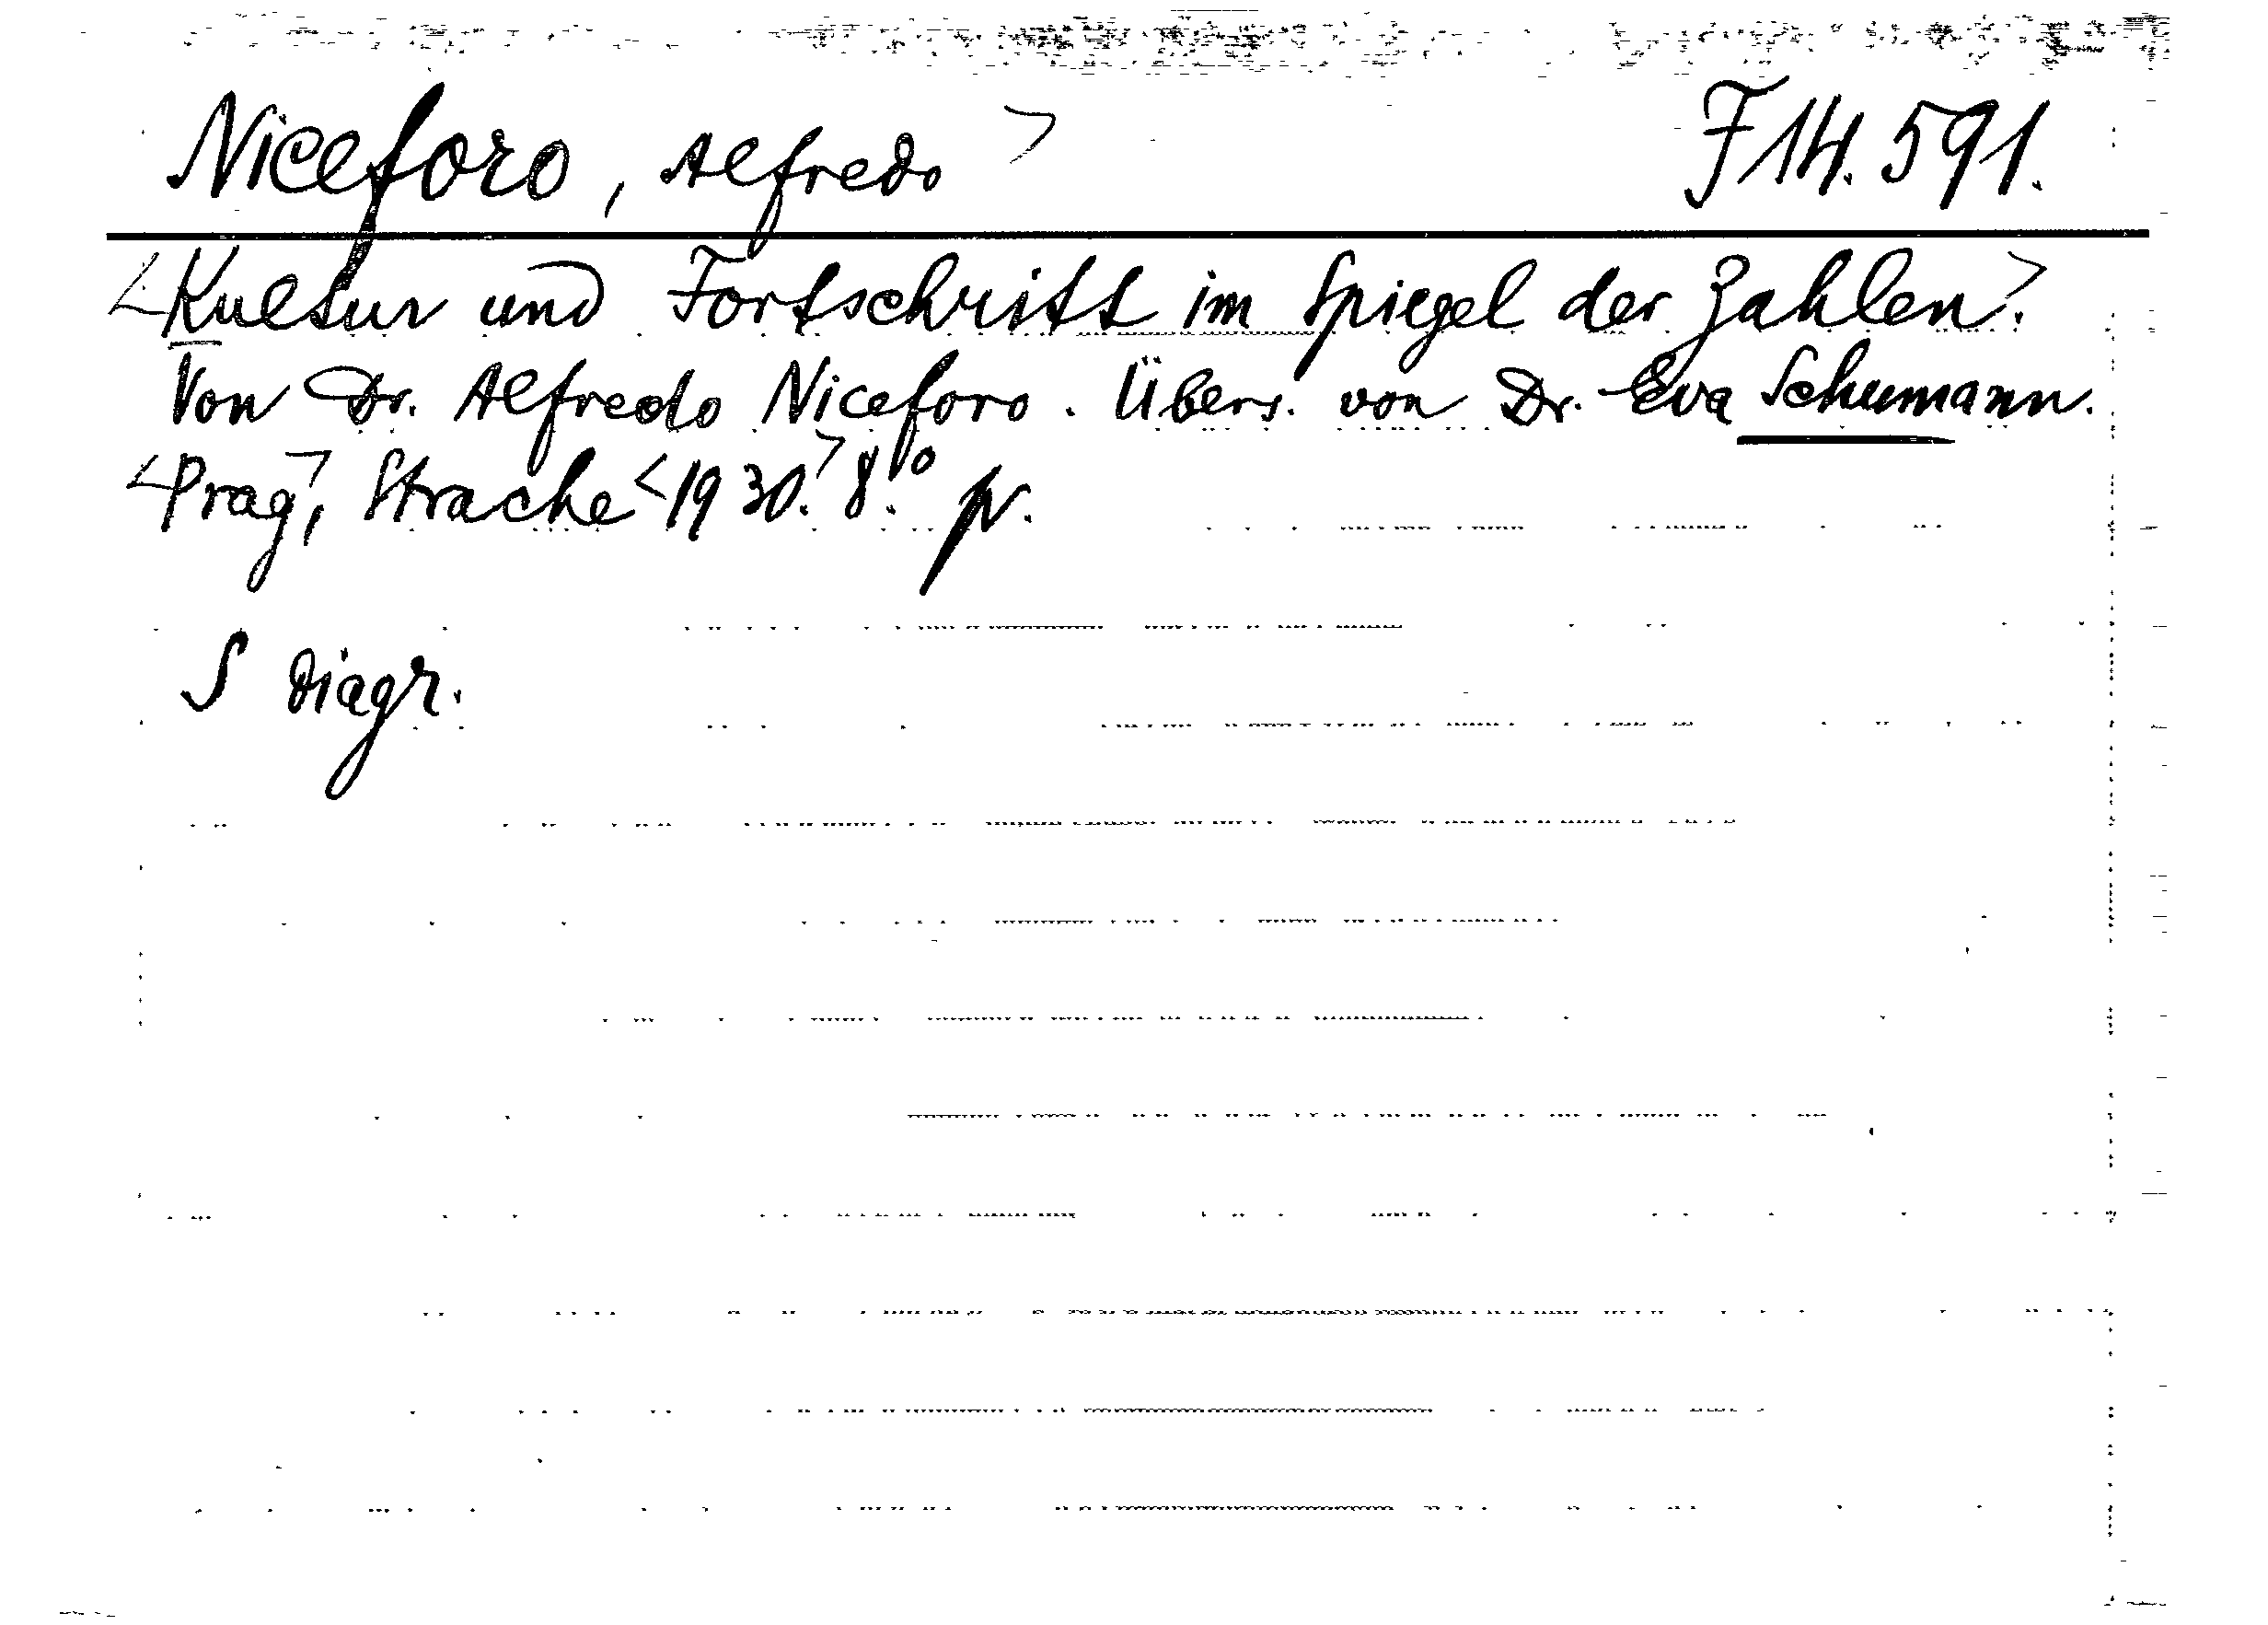 Niceforo, Alfredo > F 14.591.
<Kultur und Fortschritt im Spiegel der Zahlen.>
Von Dr. Alfredo Niceforo. Übers. von Dr. Eva Schumann.
<Prag>, Strache <1930.> 8.° pr.
S Diagr.